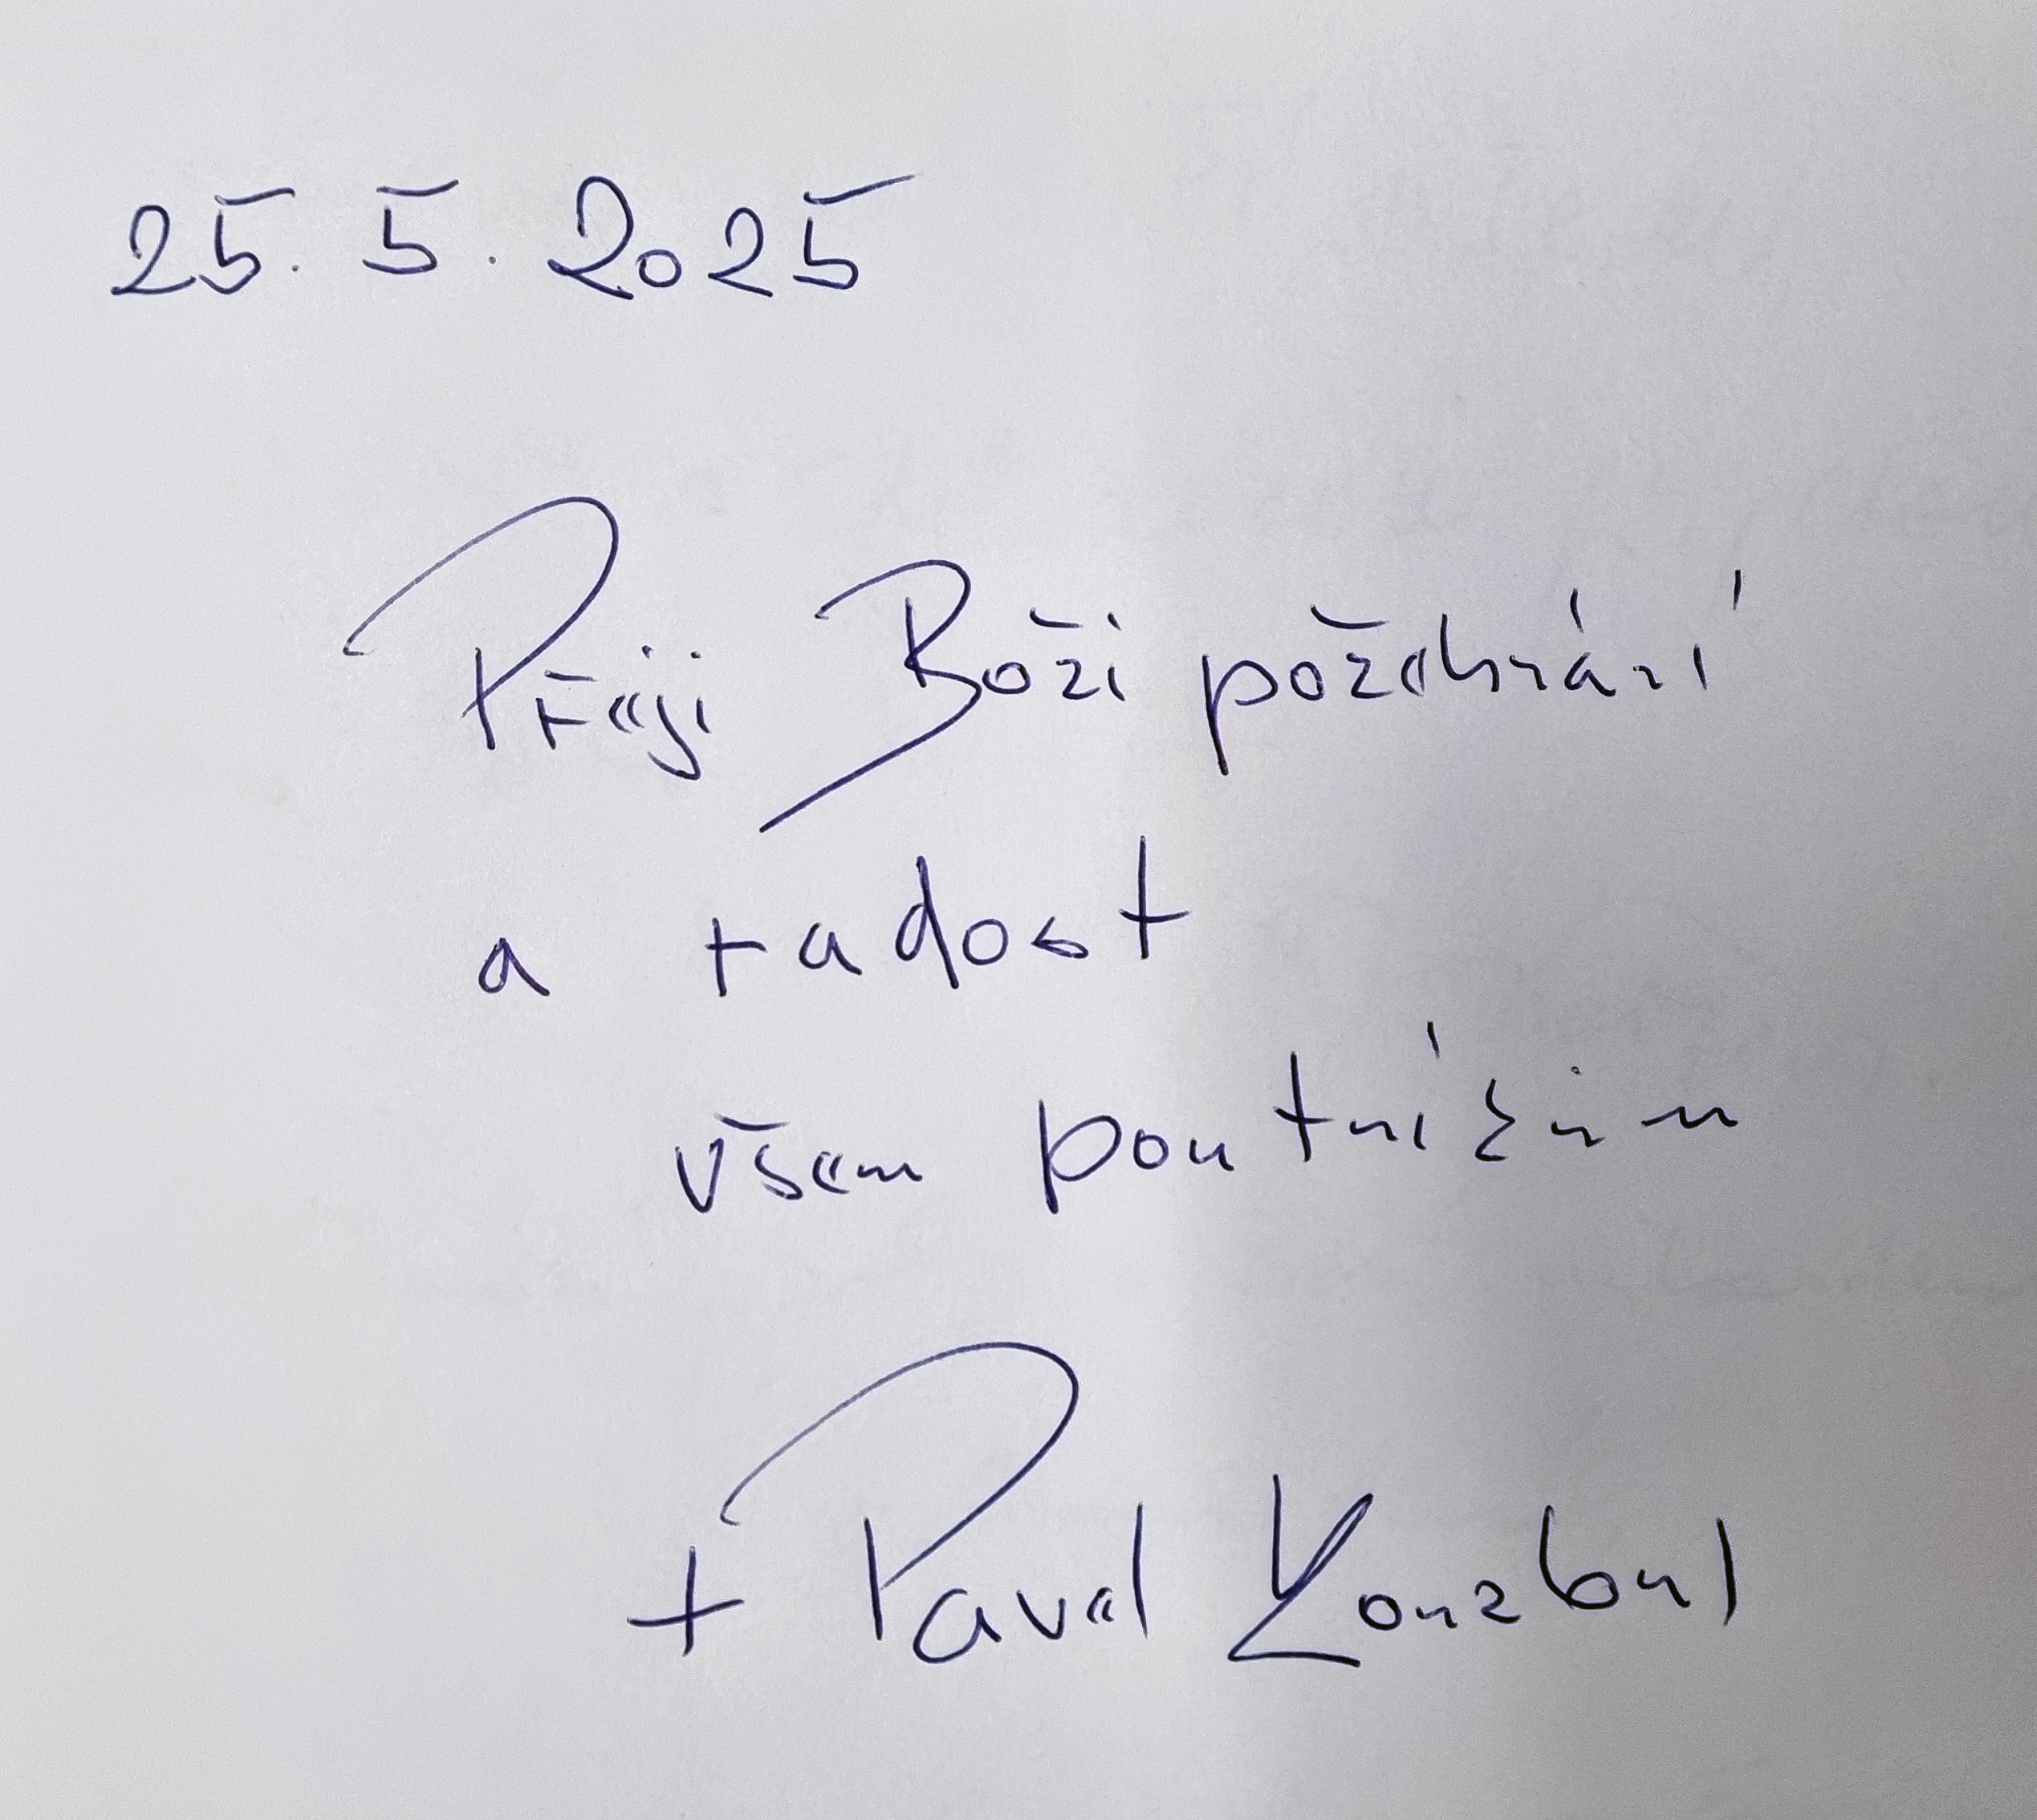 25. 5. 2025
Přeji Boži požehnání
a radost
všem poutníkům
+ Pavel Konzbul